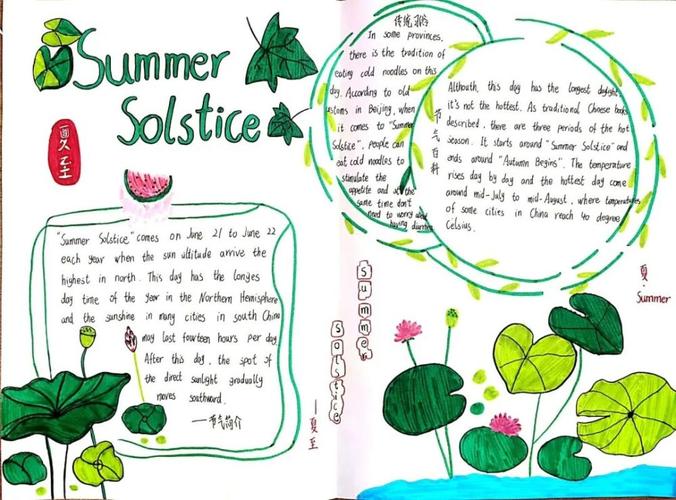 Summer
Solstice
夏至
"Summer Solstice" comes on June 21 to June 22
each year when the sun altitude arrive the
highest in north. This day has the longes
day time of the year in the Northern Hemisphere
and the sunshine in many cities in south China
may last fourteen hours per day.
After this day, the spot of
the direct sunlight gradually
moves southward.
—节气简介
传统习俗
In some provinces,
there is the tradition of
eating cold noodles on this
day. According to old
ustoms in Beijing, when
it comes to "Summer
Solstice", people can
eat cold noodles to
stimulate the
appetite and at the
same time don't
need to worry about
having diarrhea
节气百科
Althouth, this day has the longest daylight,
it's not the hottest. As traditional Chinese books
described, there are three periods of the hot
season. It starts around "Summer Solstice" and
ends around "Autumn Begins". The temperature
rises day by day and the hottest day come
around mid-July to mid-August, where temperatures
of some cities in China reach 40 degree
Celsius.
Summer
Solstice
—夏至
夏·
Summer